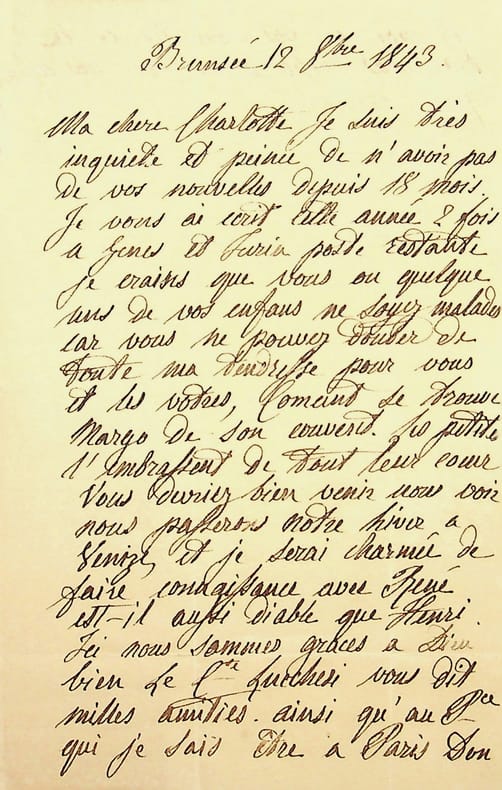 Brunsée 12 8bre 1843.
Ma chere Charlotte Je suis très
inquiete et peinée de n'avoir pas
de vos nouvelles depuis 18 mois.
Je vous ai ecrit cette année 2 fois
a Genes et Turin poste restante
je crains que vous ou quelque
uns de vos enfans ne soyez malades
car vous ne pouvez douter de
toute ma tendresse pour vous
et les votres, Coment se trouve
Margo de son couvent. Les petites
l'embrassent de tout leur coeur
Vous devriez bien venir nous voir
nous passerons notre hiver a
Venize, et je serai charmée de
faire connaissance avec René
est-il aussi diable que Henri.
Ici nous sommes graces a Dieu
bien Le Cte Luchesi vous dit
milles amities. ainsi qu'au Pce
qui je sais être a Paris Don